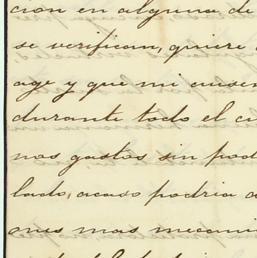 cion en alguna de
se verifican, quiere
age y que mi ausen
durante todo el c
nos gastos sin pod
lado, acaso podria a
mes mas mecani